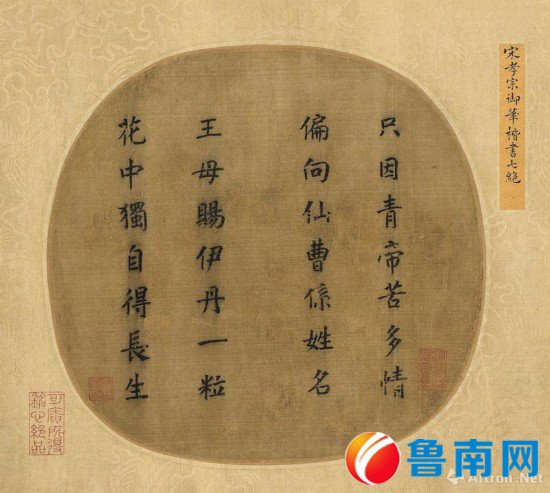 宋孝宗御筆楷書七絕
只因青帝苦多情
偏向仙曹係姓名
王母賜伊丹一粒
花中獨自得長生
鲁南网
Artron.Net